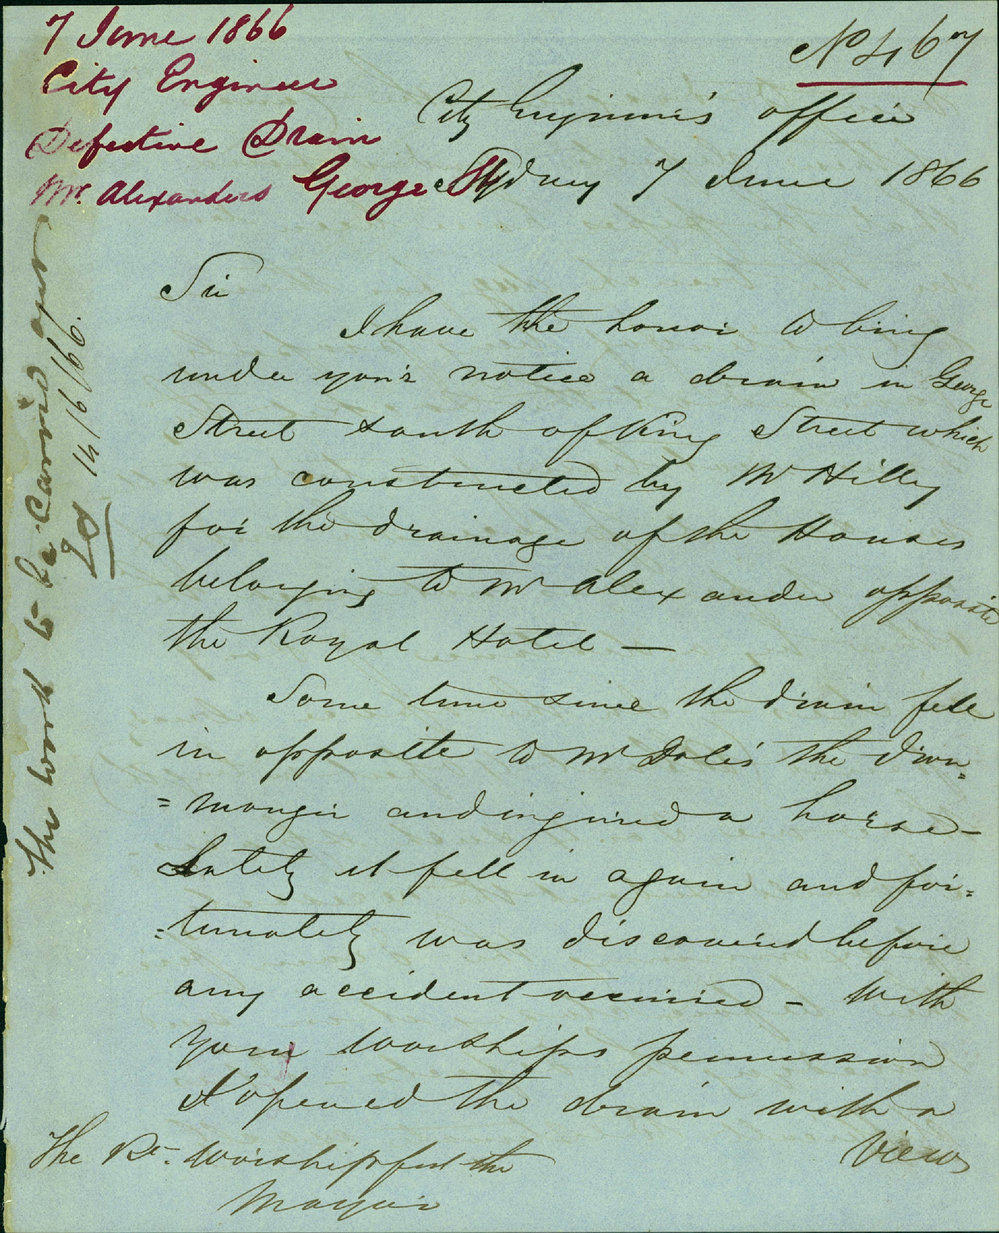 7 June 1866
City Engineer
Defective Drain
Mr. Alexanders George St
No 467
City Engineer's office
Sydney 7 June 1866
Sir
I have the honor to bring
under your notice a drain in George
Street south of King Street which
was constructed by Mr Hilly
for the drainage of the Houses
belonging to Mr Alexander opposite
the Royal Hotel —
Some time since the drain fell
in opposite to Mr Isles the Iron=
=monger and injured a horse—
Lately it fell in again and for=
=tunately was discovered before
any accident occurred – With
your Worships permission
I opened the drain with a
view
The Rt. Worshipful the
Mayor
The work to be carried over
14/6/66.